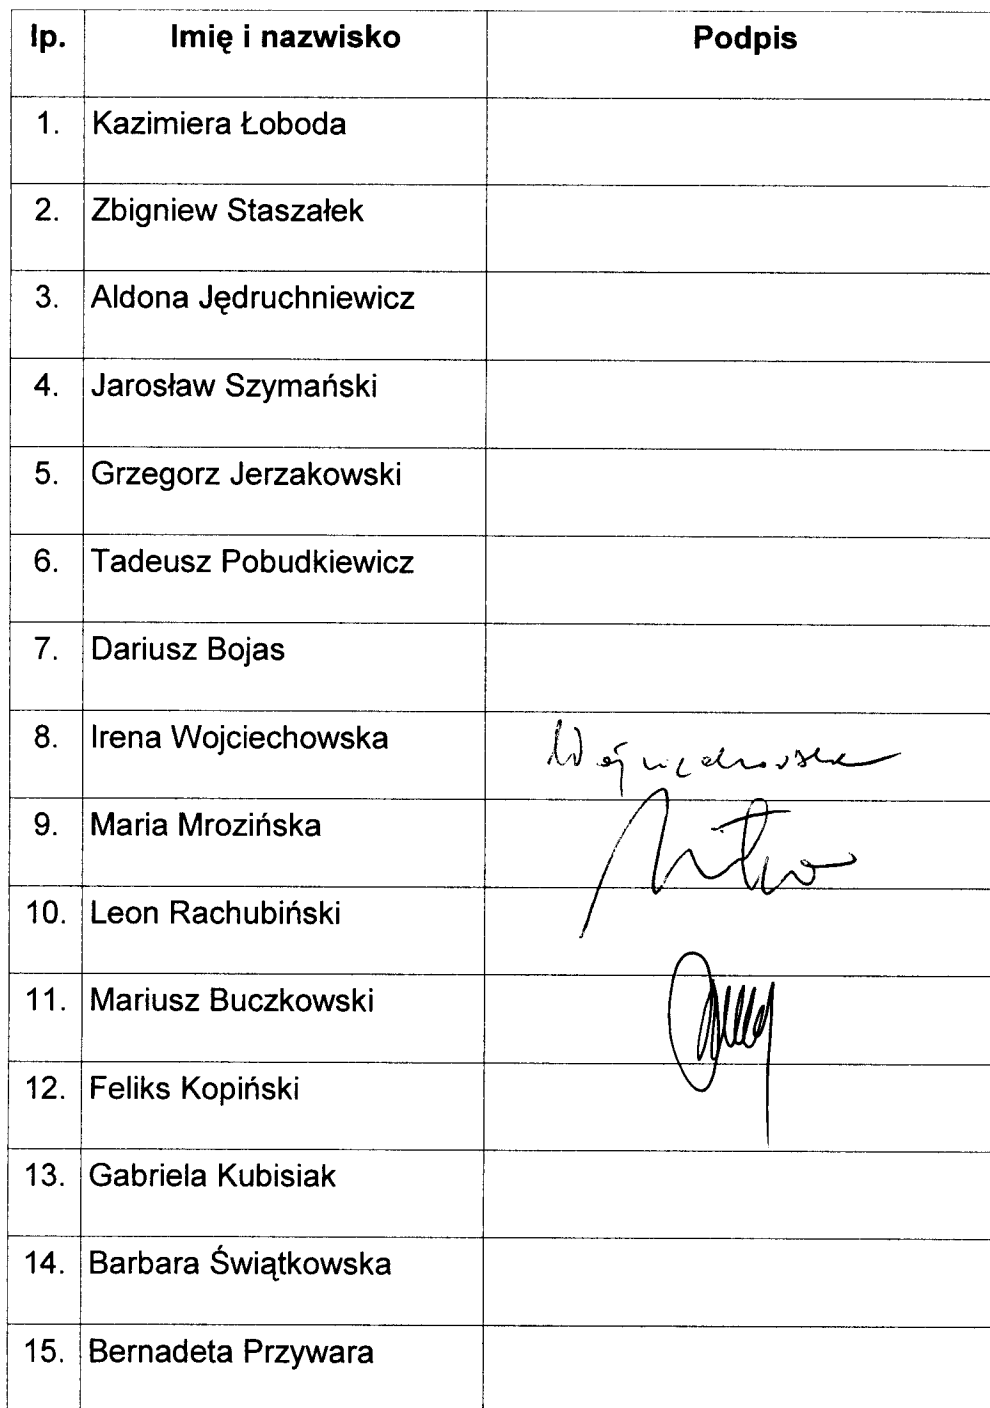 lp. Imię i nazwisko Podpis
1. Kazimiera Łoboda
2. Zbigniew Staszałek
3. Aldona Jędruchniewicz
4. Jarosław Szymański
5. Grzegorz Jerzakowski
6. Tadeusz Pobudkiewicz
7. Dariusz Bojas
8. Irena Wojciechowska Wojciechowska
9. Maria Mrozińska
10. Leon Rachubiński
11. Mariusz Buczkowski
12. Feliks Kopiński
13. Gabriela Kubisiak
14. Barbara Świątkowska
15. Bernadeta Przywara